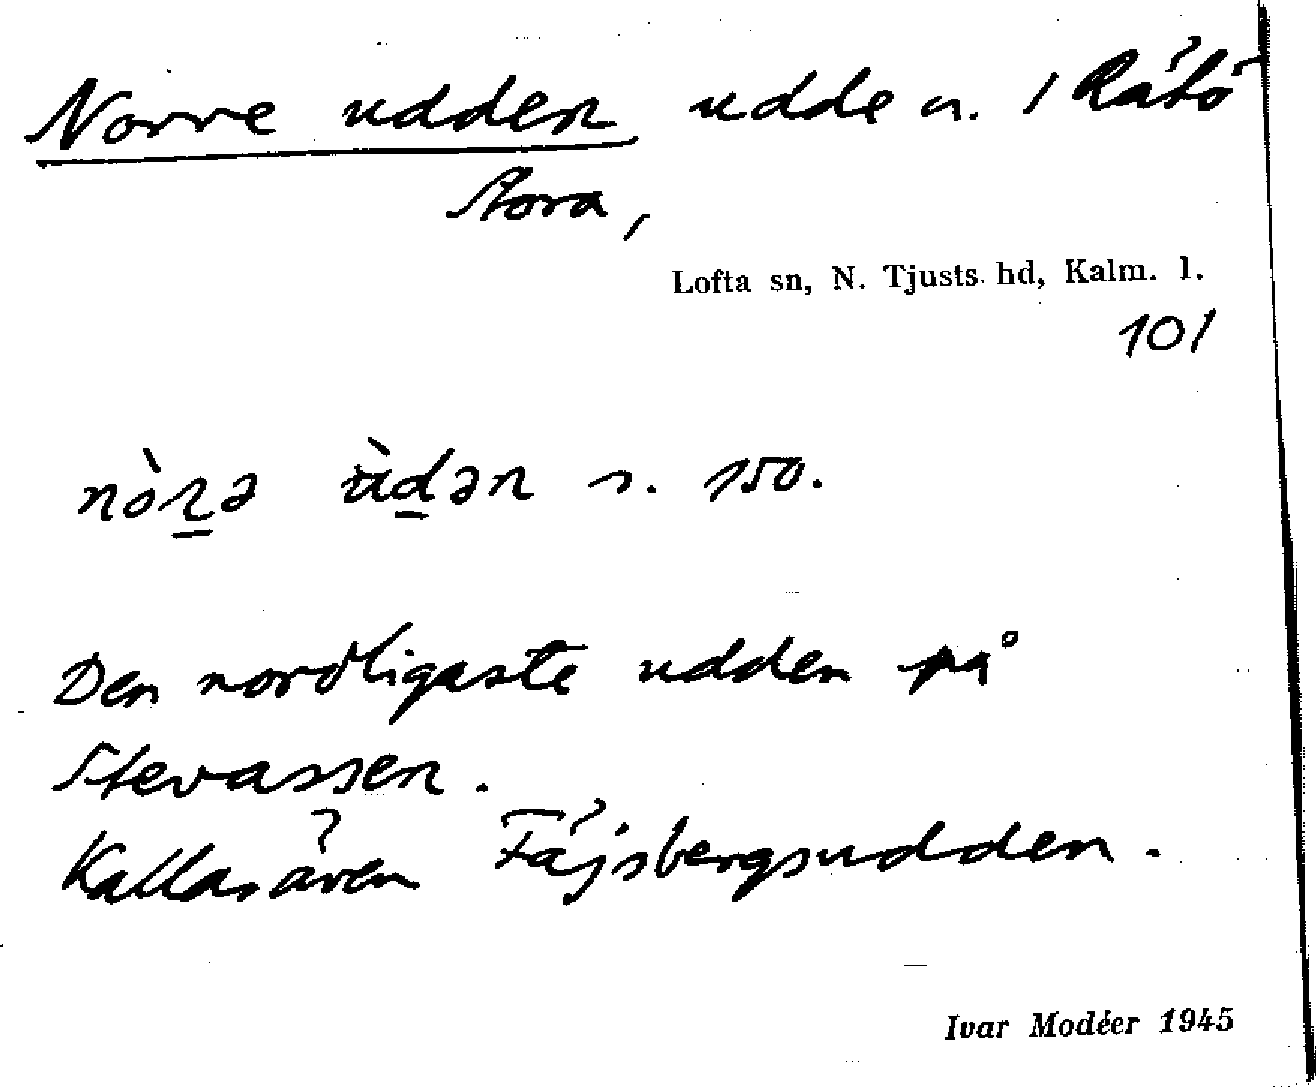 Norre udden udde n. / Rätö
Stora,
Lofta sn, N. Tjusts hd, Kalm. l.
101
nòrə ùdən s. 150.
Den nordligaste udden på
Stevassen.
Kallas även Fäjsbergsudden.
Ivar Modéer 1945